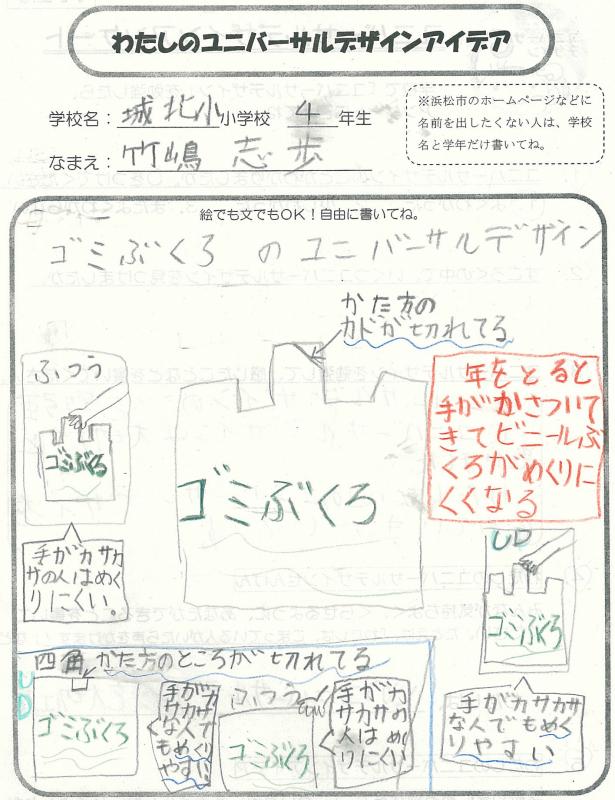 わたしのユニバーサルデザインアイデア
学校名：城北小小学校 4 年生
なまえ：竹嶋 志歩
※浜松市のホームページなどに
名前を出したくない人は、学校
名と学年だけ書いてね。
絵でも文でもOK！自由に書いてね。
ゴミぶくろ のユニバーサルデザイン
かた方の
カドが切れてる
ふつう
ゴミぶくろ
手がカサカ
サの人はめく
りにくい。
ゴミぶくろ
年をとると
手がかさついて
きてビニールぶ
くろがめくりに
くくなる
UD
ゴミぶくろ
手がカサカサ
な人でもめく
りやすい
四角 かた方のところが切れてる
UD
ゴミぶくろ
手がカ
サカサ
な人で
もめくり
やすい
ふつう
ゴミぶくろ
手がカ
サカサの
人はめく
りにくい